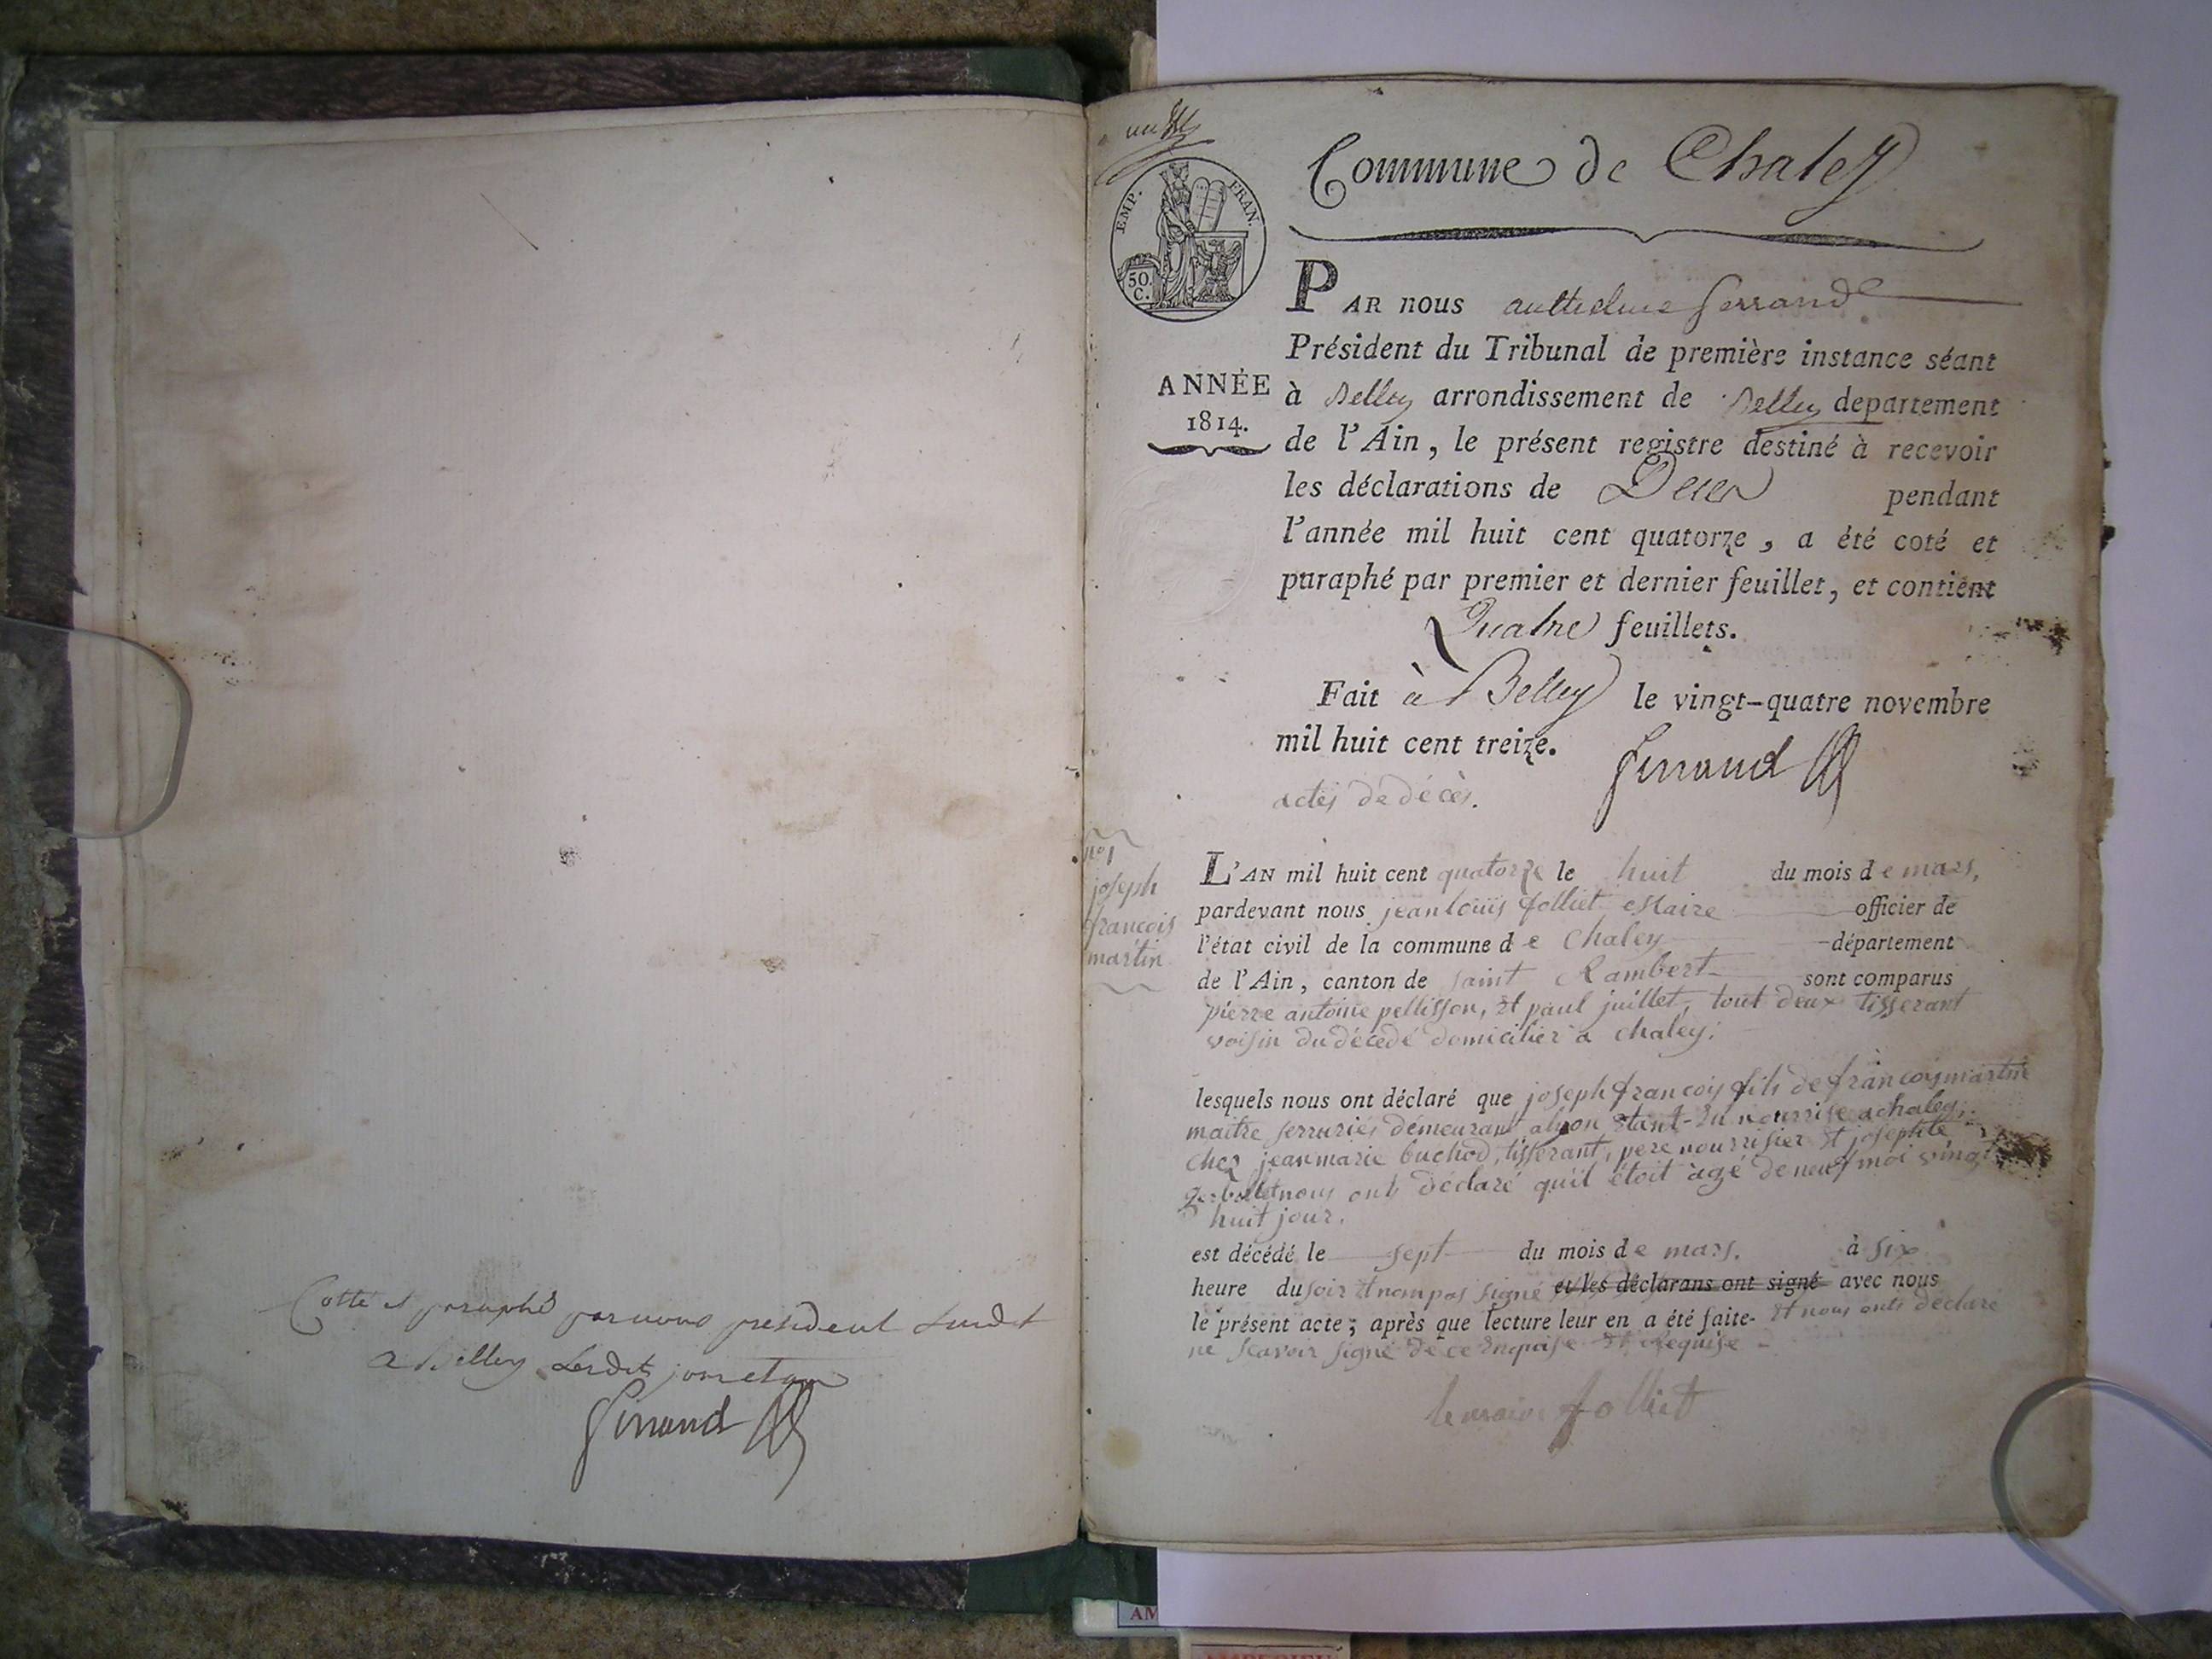 Cotté et paraphé par nous president susdit
a Belley lesdits jour et an
Ferrand
un
EMP. FRAN.
50.
C.
Commune de Chaley
PAR nous anthelme ferrand
Président du Tribunal de première instance séant
ANNÉE
1814.
à Belley arrondissement de Belley departement
de l'Ain, le présent registre destiné à recevoir
les déclarations de Deces pendant
l'année mil huit cent quatorze, a été coté et
paraphé par premier et dernier feuillet, et contient
Quatre feuillets.
Fait à Belley le vingt-quatre novembre
mil huit cent treize.
Ferrand
actes de décès.
n° 1
joseph
francois
martin
L'AN mil huit cent quatorze le huit du mois de mars,
pardevant nous jean louis folliet Maire officier de
l'état civil de la commune de Chaley département
de l'Ain, canton de saint Rambert sont comparus
pierre antoine pellisson, et paul juillet, tout deux tisserant
voisin du décedé domicilier a chaley;
lesquels nous ont déclaré que joseph francois fils de francois martin
maitre serrurier demeurant alyon etant en nourrise a chaley,
chez jean marie buchod, tisserant, pere nourrisier et josephte
gerbollet nous onts déclaré quil étoit àgé de neuf moi vingt
huit jour.
est décédé le sept du mois de mars. à six
heure du soir et nom pas signé et les déclarans ont signé avec nous
le présent acte; après que lecture leur en a été faite. et nous onts déclaré
ne scavoir signé de ce enquise et Requise
le maire folliet
AM